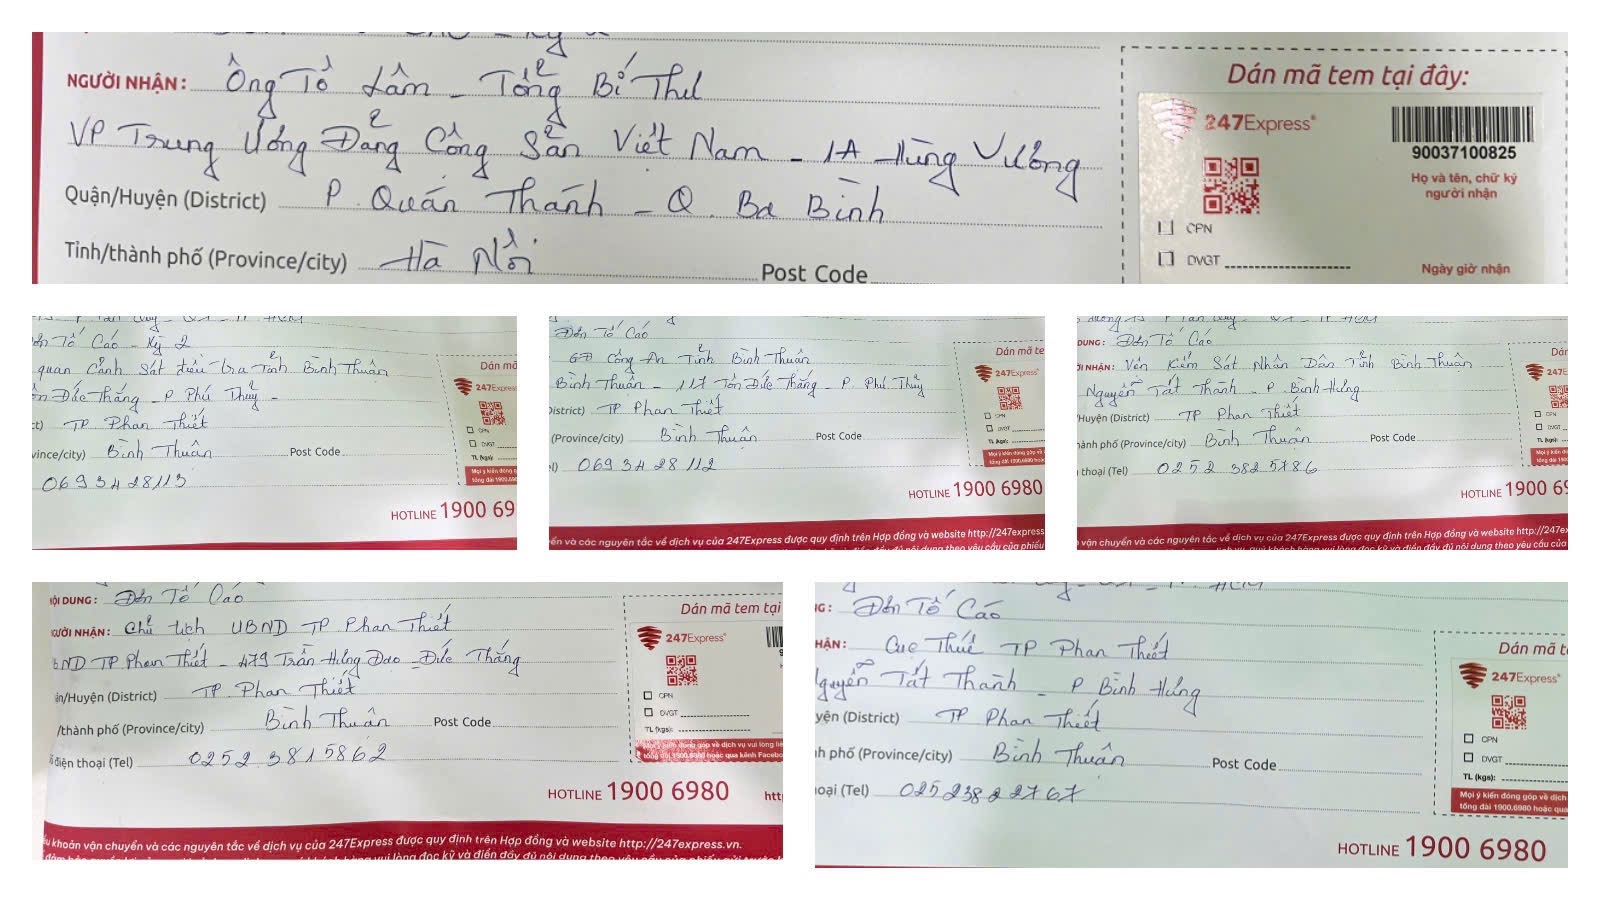 NGƯỜI NHẬN: Ông Tô Lâm - Tổng Bí Thư
VP Trung Ương Đảng Cộng Sản Việt Nam - 1A Hùng Vương
Quận/Huyện (District) P. Quán Thánh - Q. Ba Đình
Tỉnh/thành phố (Province/city) Hà Nội
Post Code
Dán mã tem tại đây:
247Express®
90037100825
Họ và tên, chữ ký
người nhận
CPN
ĐVGT
Ngày giờ nhận
Tố Cáo - Kỳ 2
quan Cảnh Sát điều tra Tỉnh Bình Thuận
Đức Thắng - P Phú Thủy -
TP Phan Thiết
vince/city) Bình Thuận Post Code
0693428113
Dán mã
247Express
CPN
ĐVGT
TL (kgs):
HOTLINE 1900 69
Đơn Tố Cáo
GĐ Công An Tỉnh Bình Thuận
Bình Thuận - 117 Tôn Đức Thắng - P. Phú Thủy
istrict) TP Phan Thiết
(Province/city) Bình Thuận Post Code
0693428112
Dán mã te
247Express
CPN
ĐVGT
TL (kgs):
HOTLINE 1900 6980
ển và các nguyên tắc về dịch vụ của 247Express được quy định trên Hợp đồng và website http://247express
DUNG: Đơn Tố Cáo
I NHẬN: Viện Kiểm Sát Nhân Dân Tỉnh Bình Thuận
Nguyễn Tất Thành - P. Bình Hưng
Huyện (District) TP Phan Thiết
ành phố (Province/city) Bình Thuận Post Code
thoại (Tel) 0252 3825786
Dán
247E
CPN
ĐVGT
TL (kgs):
HOTLINE 1900 69
vận chuyển và các nguyên tắc về dịch vụ của 247Express được quy định trên Hợp đồng và website http://247ex
ỘI DUNG: Đơn Tố Cáo
GƯỜI NHẬN: Chủ tịch UBND TP Phan Thiết
BND TP Phan Thiết - 479 Trần Hưng Đạo - Đức Thắng
ận/Huyện (District) TP. Phan Thiết
/thành phố (Province/city) Bình Thuận Post Code
điện thoại (Tel) 0252 3815862
Dán mã tem tại
247Express®
CPN
ĐVGT
TL (kgs):
Mọi ý kiến đóng góp về dịch vụ vui lòng liê
tổng đài 1900.6980 hoặc qua kênh Faceboo
HOTLINE 1900 6980 htt
u khoản vận chuyển và các nguyên tắc về dịch vụ của 247Express được quy định trên Hợp đồng và website http://247express.vn.
G: Đơn Tố Cáo
HẬN: Cục Thuế TP Phan Thiết
guyễn Tất Thành - P Bình Hưng
yện (District) TP Phan Thiết
h phố (Province/city) Bình Thuận Post Code
oại (Tel) 02523822767
Dán mã t
247Express®
CPN
ĐVGT
TL (kgs):
Mọi ý kiến đóng góp về dịch
tổng đài 1900.6980 hoặc qua
HOTLINE 1900 6980